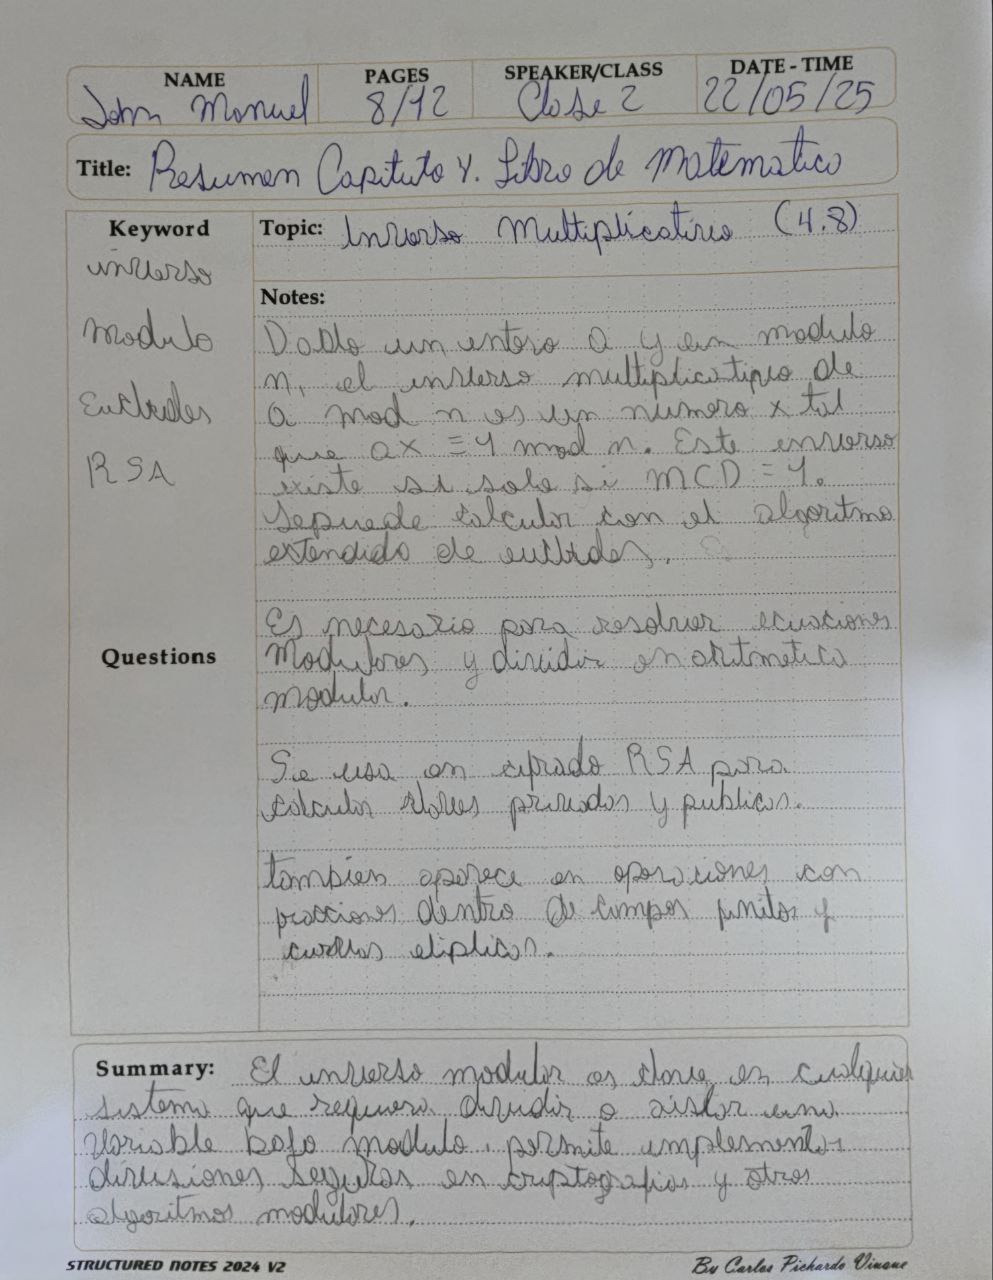 NAME PAGES SPEAKER/CLASS DATE-TIME
John Manuel 8/12 Clase 2 22/05/25
Title: Resumen Capitulo 4. Libro de Matematica
Keyword
inverso
Modulo
Euclides
RSA
Questions
Topic: Inverso Multiplicativo (4.8)
Notes:
Dado un entero a y un modulo
n, el inverso multiplicativo de
a mod n es un numero x tal
que ax = 1 mod n. Este inverso
existe si solo si MCD = 1.
Sepuede calcular con el algoritmo
extendido de euclides.
Es necesario para resolver ecuaciones
Modulares y dividir en aritmetica
modular.
Se usa en cifrado RSA para
calcular claves privadas y publicas.
tambien aparece en operaciones con
fracciones dentro de campos finitos y
curvas elipticas.
Summary: El inverso modular es clave en cualquier
sistema que requiera dividir o aislar una
variable bajo modulo, permite implementar
divisiones seguras en criptografia y otros
algoritmos modulares.
STRUCTURED NOTES 2024 V2
By Carlos Pichardo Viuque